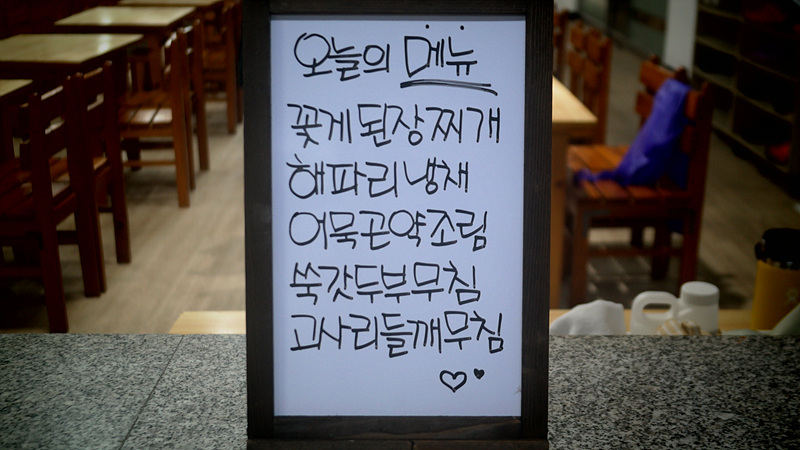 오늘의 메뉴
꽃게된장찌개
해파리냉채
어묵곤약조림
쑥갓두부무침
고사리들깨무침